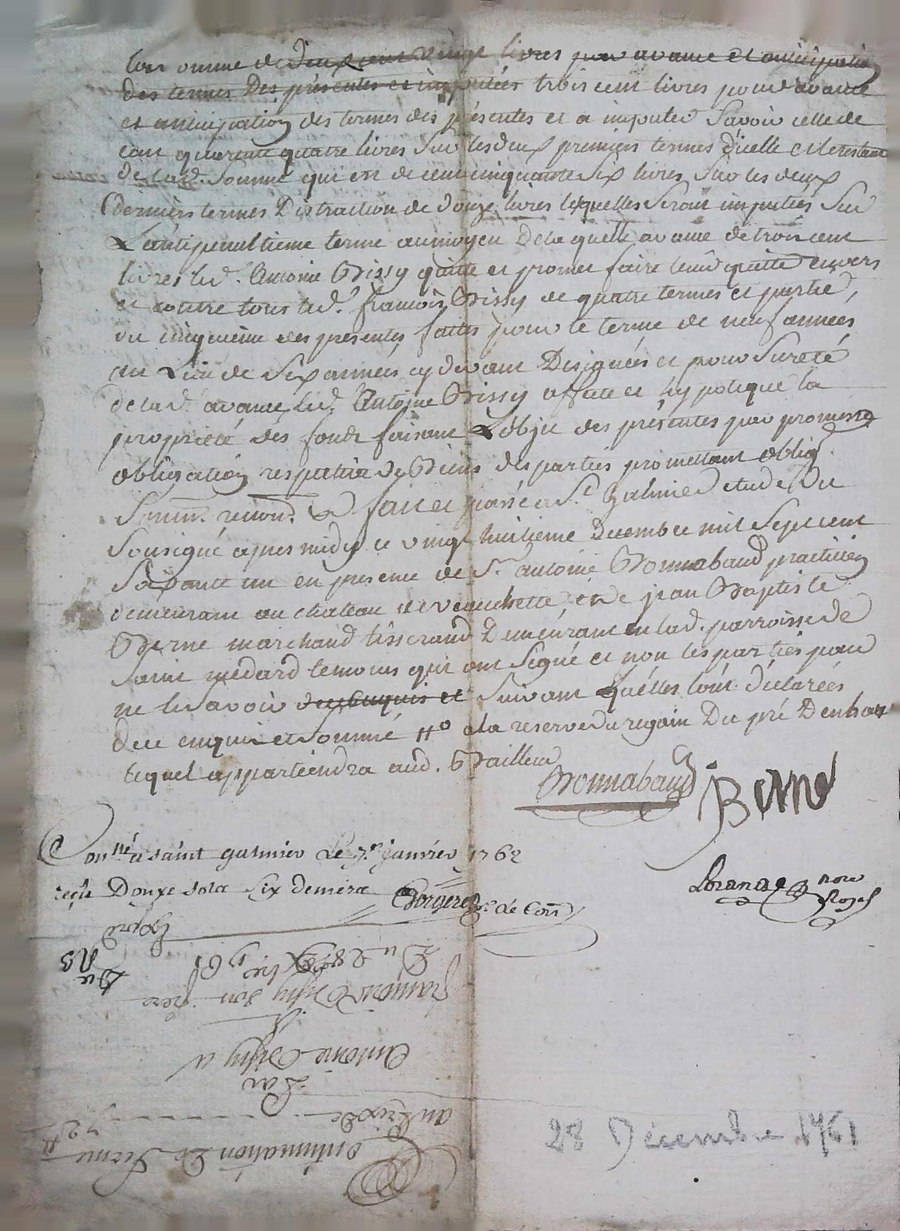 la somme de deux cent vingt livres pour avance et anticipation
des termes des présentes et imputées trois cent livres pour avance
et anticipation des termes des présentes et a imputer Savoir celle de
cent quarente quatre livres Sur les deux premiers termes d'icelle et le restant
de lad. Somme qui est de cent cinquante Six livres, Sur les deux
derniers termes Distraction de douze livres lesquelles Seront imputées Sur
L'antipenultieme terme au moyen de la quelle avance de trois cent
livres led. Antoine Brissy quitte et promet faire tenir quitte envers
et contre tous led. francois Brissy de quatre termes et partie,
du cinquieme des presentes faittes pour le terme de neuf années
au Lieu de Six années cy devant Designées et pour Sureté
de lad. avance led. Antoine Brissy affecte et hypoteque la
propriété des fonds faisant L'objet des présentes par promesse
obligation respective de Biens des parties promettant oblig.
Soum. renon. fait et passé a St. Galmier etude du
Sousigné apres midy ce vingt huitieme Decembre mil Sept cent
Soixante un en presence de Sr. antoine Bonnabaud practicien
demeurant au chateau de veauchette, et de jean Baptiste
Berne marchand tisserand Demeurant en lad. parroisse de
Saint medard temoins qui ont Signé et non les parties pour
ne le Savoir de ce enquis et Suivant quelles l'ont declarées
de ce enquis et sommé a la reserve du regain Du pré Denhaut
lequel appartiendra aud. Bailleur
Bonnabaud Berne
Con.llé a saint galmier le 7e. janvier 1762
reçu Douze sols Six deniers
no.re Royal
Expédié
Du 28 Xbre 1761
Du
francois Brissy son frere
a
Antoine Brissy
Par
au prix de 72 ll
Continuation de Ferme
28 Décembre 1761